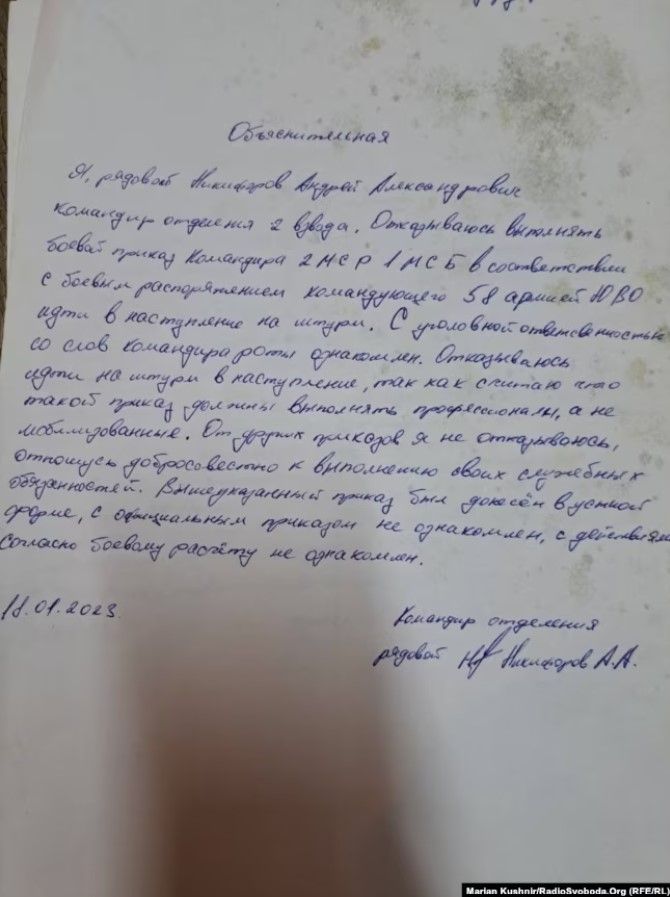 Объяснительная
Я, рядовой Никифоров Андрей Александрович
командир отделения 2 взвода. Отказываюсь выполнять
боевой приказ Командира 2 МСР 1 МСБ в соответствии
с боевым распоряжением командующего 58 армией ЮВО
идти в наступление на штурм. С уголовной ответсвенностью
со слов командира роты ознакомлен. Отказываюсь
идти на штурм в наступление, так как считаю что
такой приказ должны выполнять профессионалы, а не
мобилизованные. От других приказов я не отказываюсь,
отношусь добросовестно к выполнению своих служебных
обязанностей. Вышеуказанный приказ был донесён в устной
форме, с официальным приказом не ознакомлен, с действиями
согласно боевому расчёту не ознакомлен.
18.01.2023.
Командир отделения
рядовой Никифоров А.А.
Marian Kushnir/RadioSvoboda.Org (RFE/RL)